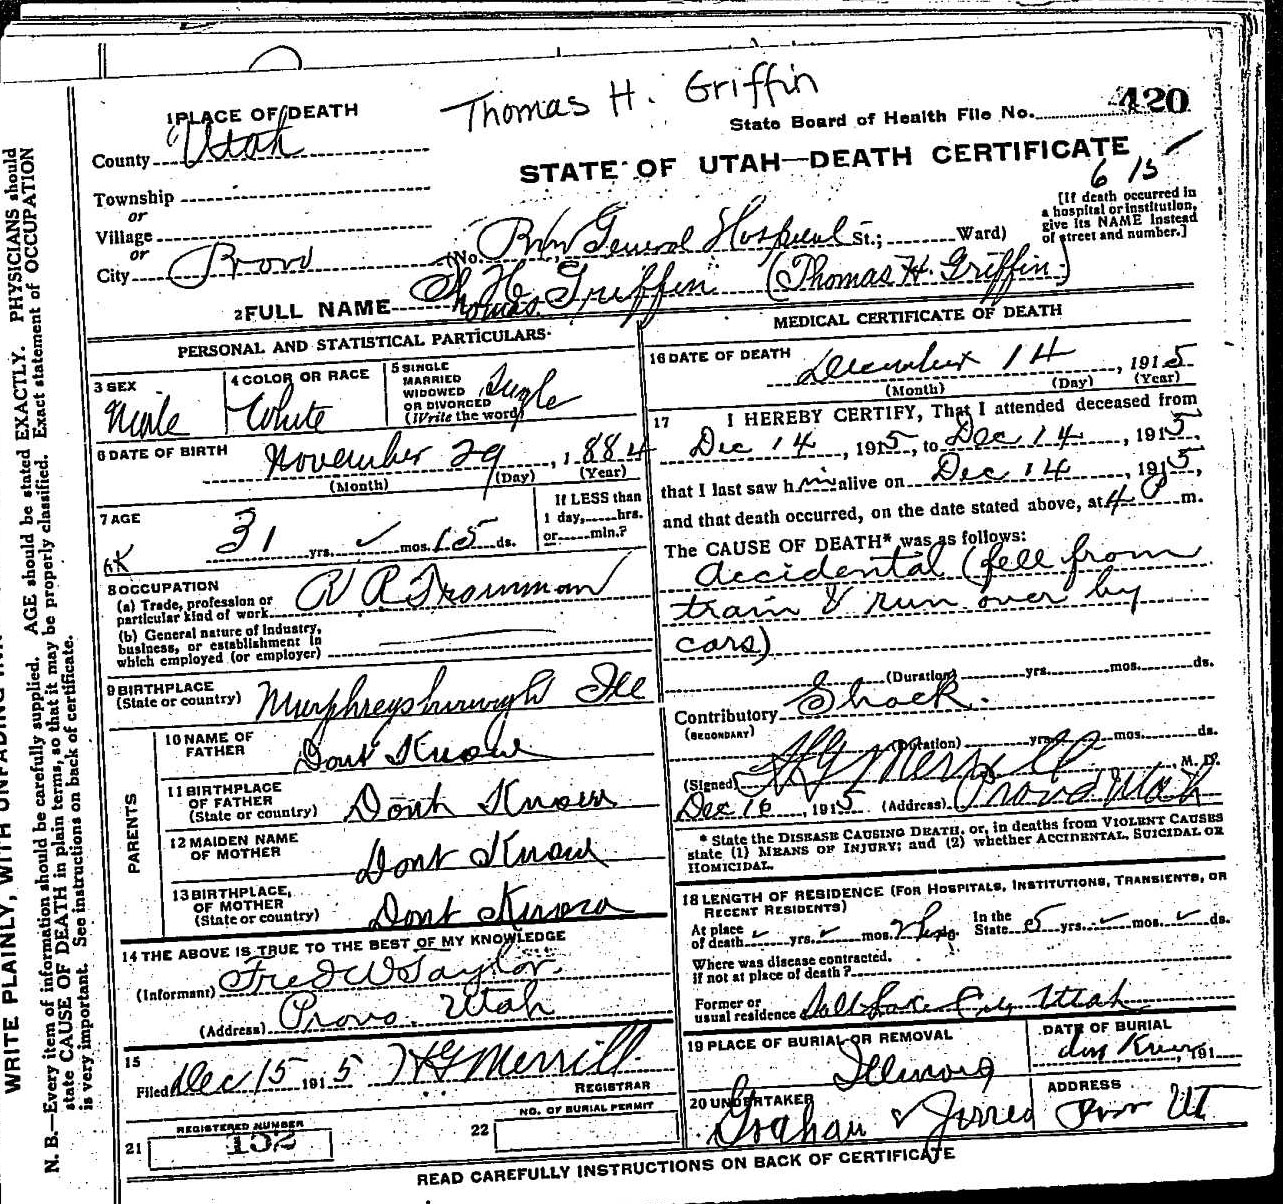 Thomas H. Griffin
1 PLACE OF DEATH
State Board of Health File No. 420
County Utah
STATE OF UTAH—DEATH CERTIFICATE
6 15
Township
or
Village
or
City Provo
(No. Prov General Hospital St.; Ward)
[If death occurred in
a hospital or institution,
give its NAME instead
of street and number.]
2 FULL NAME Thomas H Griffin (Thomas H. Griffin)
PERSONAL AND STATISTICAL PARTICULARS
3 SEX
Male
4 COLOR OR RACE
White
5 SINGLE
MARRIED
WIDOWED
OR DIVORCED
(Write the word)
Single
6 DATE OF BIRTH
November 29, 1884
(Month) (Day) (Year)
7 AGE
31 yrs. mos. 15 ds.
If LESS than
1 day, hrs.
or min.?
8 OCCUPATION
(a) Trade, profession or
particular kind of work
R R Trainman
(b) General nature of industry,
business, or establishment in
which employed (or employer)
9 BIRTHPLACE
(State or country)
Murphreysburough Ill
PARENTS
10 NAME OF
FATHER
Dont Know
11 BIRTHPLACE
OF FATHER
(State or country)
Dont Know
12 MAIDEN NAME
OF MOTHER
Dont Know
13 BIRTHPLACE,
OF MOTHER
(State or country)
Dont Know
14 THE ABOVE IS TRUE TO THE BEST OF MY KNOWLEDGE
(Informant) Fred W Taylor
(Address) Provo, Utah
15
Filed Dec 15 1915 H G Merrill
REGISTRAR
21
REGISTERED NUMBER
152
22
NO. OF BURIAL PERMIT
MEDICAL CERTIFICATE OF DEATH
16 DATE OF DEATH
December 14, 1915
(Month) (Day) (Year)
17 I HEREBY CERTIFY, That I attended deceased from
Dec 14, 1915, to Dec 14, 1915,
that I last saw him alive on Dec 14, 1915,
and that death occurred, on the date stated above, at 4 P m.
The CAUSE OF DEATH* was as follows:
Accidental (fell from
train & run over by
cars)
(Duration) yrs. mos. ds.
Contributory Shock.
(SECONDARY)
(Duration) yrs. mos. ds.
(Signed) H G Merrill, M. D.
Dec 16, 1915 (Address) Provo Utah
* State the DISEASE CAUSING DEATH, or, in deaths from VIOLENT CAUSES
state (1) MEANS OF INJURY; and (2) whether ACCIDENTAL, SUICIDAL OR
HOMICIDAL.
18 LENGTH OF RESIDENCE (FOR HOSPITALS, INSTITUTIONS, TRANSIENTS, OR
RECENT RESIDENTS)
At place
of death yrs. mos. 2 hrs.
In the
State 5 yrs. mos. ds.
Where was disease contracted.
if not at place of death?
Former or
usual residence Salt Lake City Utah
19 PLACE OF BURIAL OR REMOVAL
Illinois
DATE OF BURIAL
dont Know, 191
20 UNDERTAKER
Graham &
ADDRESS
Prov UT
READ CAREFULLY INSTRUCTIONS ON BACK OF CERTIFICATE
N. B.—Every item of information should be carefully supplied. AGE should be stated EXACTLY. PHYSICIANS should
state CAUSE OF DEATH in plain terms, so that it may be properly classified. Exact statement of OCCUPATION
is very important. See instructions on back of certificate.
WRITE PLAINLY, WITH UNFADING